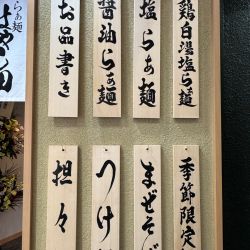 らぁ麺
はやし田
お品書き
醤油らぁ麺
塩らぁ麺
鶏白湯塩らぁ麺
担々
つけ麺
まぜそば
季節限定